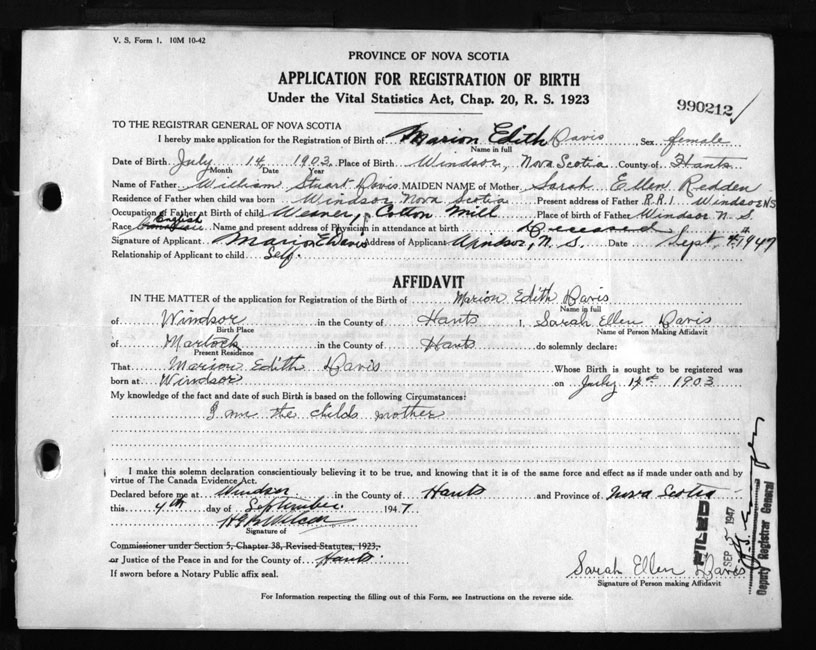 V. S. Form 1. 10M 10-42
PROVINCE OF NOVA SCOTIA
APPLICATION FOR REGISTRATION OF BIRTH
Under the Vital Statistics Act, Chap. 20, R. S. 1923
990212
TO THE REGISTRAR GENERAL OF NOVA SCOTIA
I hereby make application for the Registration of Birth of Marion Edith Davis Sex female
Name in full
Date of Birth July 14 1903 Place of Birth Windsor, Nova Scotia County of Hants
Month Date Year
Name of Father William Stuart Davis MAIDEN NAME of Mother Sarah Ellen Redden
Residence of Father when child was born Windsor Nova Scotia Present address of Father R.R.1 Windsor N.S.
Occupation of Father at Birth of child Weaver, Cotton Mill Place of birth of Father Windsor N. S.
Race Canadian English Name and present address of Physician in attendance at birth Deceased
Signature of Applicant Marion E Davis Address of Applicant Windsor, N. S. Date Sept. 4th 1947
Relationship of Applicant to child Self.
AFFIDAVIT
IN THE MATTER of the application for Registration of the Birth of Marion Edith Davis
Name in full
of Windsor in the County of Hants I, Sarah Ellen Davis
Birth Place Name of Person Making Affidavit
of Martock in the County of Hants do solemnly declare:
Present Residence
That Marion Edith Davis Whose Birth is sought to be registered was
born at Windsor on July 14th 1903
My knowledge of the fact and date of such Birth is based on the following Circumstances:
I am the childs mother
I make this solemn declaration conscientiously believing it to be true, and knowing that it is of the same force and effect as if made under oath and by
virtue of The Canada Evidence Act.
Declared before me at Windsor in the County of Hants and Province of Nova Scotia
this 4th day of September 1947
Signature of
Commissioner under Section 5, Chapter 38, Revised Statutes, 1923,
or Justice of the Peace in and for the County of Hants
If sworn before a Notary Public affix seal.
Sarah Ellen Davis
Signature of Person making Affidavit
FILED
SEP 5 1947
Deputy Registrar General
For Information respecting the filling out of this Form, see Instructions on the reverse side.